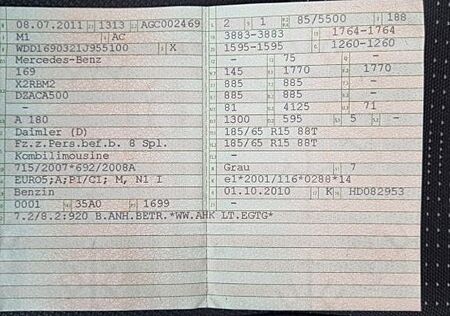 08.07.2011 1313 AGC002469
M1 AC
WDD1690321J955100 X
Mercedes-Benz
169
X2RBM2
DZACA500
-
A 180
Daimler (D)
Fz.z.Pers.bef.b. 8 Spl.
Kombilimousine
715/2007*692/2008A
EURO5;A;PI/CI; M, N1 I
Benzin
0001 35A0 1699
7.2/8.2:920 B.ANH.BETR.*WW.AHK LT.EGTG*
2 1 85/5500 188
3883-3883 1764-1764
1595-1595 1260-1260
- 75 -
145 1770 1770
885 885 -
885 885 -
81 4125 71
1300 595 5 -
185/65 R15 88T
185/65 R15 88T
-
Grau 7
e1*2001/116*0288*14
01.10.2010 K HD082953
-